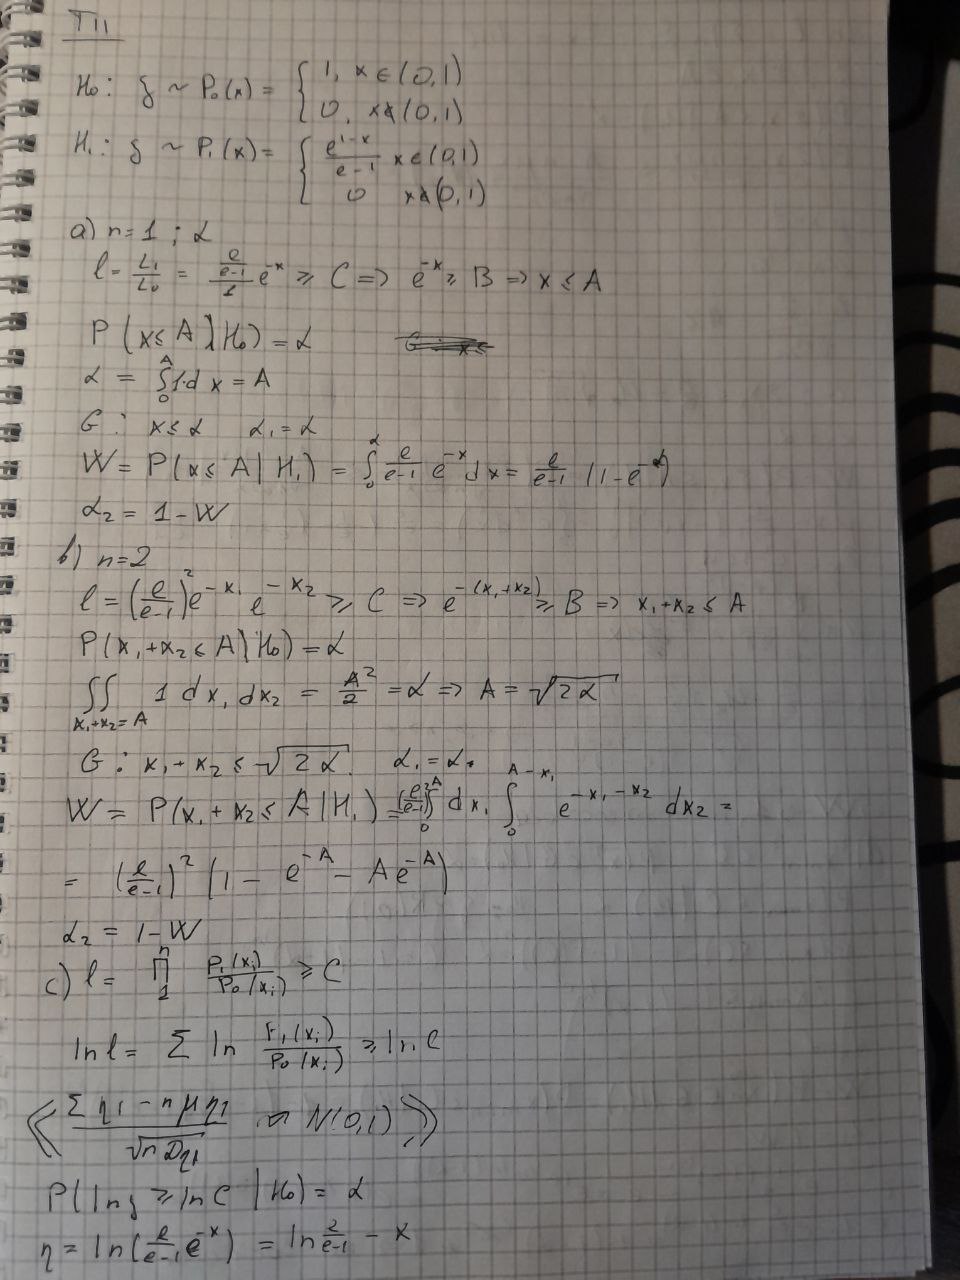 T11
H₀: ξ ~ P₀(x) = { 1, x ∈ (0,1)
0, x ∉ (0,1)
H₁: ξ ~ P₁(x) = { e^{1-x}/(e-1) x ∈ (0,1)
0 x ∉ (0,1)
a) n=1 ; α
l = L₁/L₀ = (e/(e-1))/1 e^{-x} ≥ C => e^{-x} ≥ B => x ≤ A
P(x ≤ A | H₀) = α
α = ∫₀^A 1·dx = A
G: x ≤ α α₁ = α
W = P(x ≤ A | H₁) = ∫₀^α e/(e-1) e^{-x} dx = e/(e-1) (1 - e^{-α})
α₂ = 1 - W
b) n=2
l = (e/(e-1))² e^{-x₁} e^{-x₂} ≥ C => e^{-(x₁+x₂)} ≥ B => x₁+x₂ ≤ A
P(x₁+x₂ ≤ A | H₀) = α
∬_{x₁+x₂=A} 1 dx₁ dx₂ = A²/2 = α => A = √(2α)
G: x₁+x₂ ≤ √(2α). α₁ = α.
W = P(x₁+x₂ ≤ A | H₁) = (e/(e-1))² ∫₀^A dx₁ ∫₀^{A-x₁} e^{-x₁-x₂} dx₂ =
= (e/(e-1))² (1 - e^{-A} - A e^{-A})
α₂ = 1 - W
c) l = ∏₁ⁿ P₁(x_i)/P₀(x_i) ≥ C
ln l = Σ ln P₁(x_i)/P₀(x_i) ≥ ln C
《 (Σ η₁ - n μ η₁)/√(n Dη₁) ~ N(0,1) 》
P(ln ξ ≥ ln C | H₀) = α
η = ln(e/(e-1) e^{-x}) = ln e/(e-1) - x